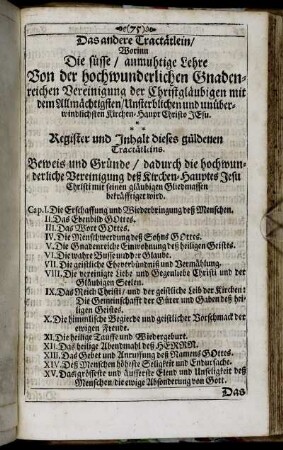 (75)
Das andere Tractätlein/
Worinn
Die süsse/ anmuhtige Lehre
Von der hochwunderlichen Gnaden-
reichen Vereinigung der Christgläubigen mit
dem Allmächtigsten/ Unsterblichen und unüber-
windlichsten Kirchen-Haupt Christo JEsu.
Register und Inhalt dieses güldenen
Tractätleins.
Beweis und Gründe/ dadurch die hochwun-
derliche Vereinigung deß Kirchen-Hauptes Jesu
Christi mit seinen gläubigen Gliedmassen
bekräfftiget wird.
Cap. I. Die Erschaffung und Wiederbringung deß Menschen.
II. Das Ebenbild GOttes.
III. Das Wort GOttes.
IV. Die Menschwerdung deß Sohns GOttes.
V. Die Gnadenreiche Einwohnung deß heiligen Geistes.
VI. Die wahre Busse und der Glaube.
VII. Die geistliche Eheverbündniß und Vermählung.
VIII. Die vereinigte Liebe und Gegenliebe Christi und der
Gläubigen Seelen.
IX. Das Reich Christi/ und der geistliche Leib der Kirchen:
Die Gemeinschafft der Güter und Gaben deß hei-
ligen Geistes.
X. Die himmlische Begierde und geistlicher Vorschmack der
ewigen Freude.
XI. Die heilige Tauffe und Wiedergeburt.
XII. Das heilige Abendmahl deß HERRN.
XIII. Das Gebet und Anruffung deß Namens GOttes.
XIV. Deß Menschen höheste Seligkeit und Endursache.
XV. Das grösseste und äusserste Elend und Unseligkeit deß
Menschen/ die ewige Absonderung von Gott.
Das